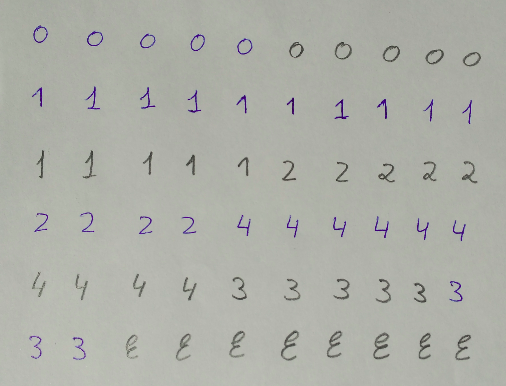 0 0 0 0 0 0 0 0 0 0
1 1 1 1 1 1 1 1 1 1
1 1 1 1 1 2 2 2 2 2
2 2 2 2 4 4 4 4 4 4
4 4 4 4 3 3 3 3 3 3
3 3 ع ع ع ع ع ع ع ع